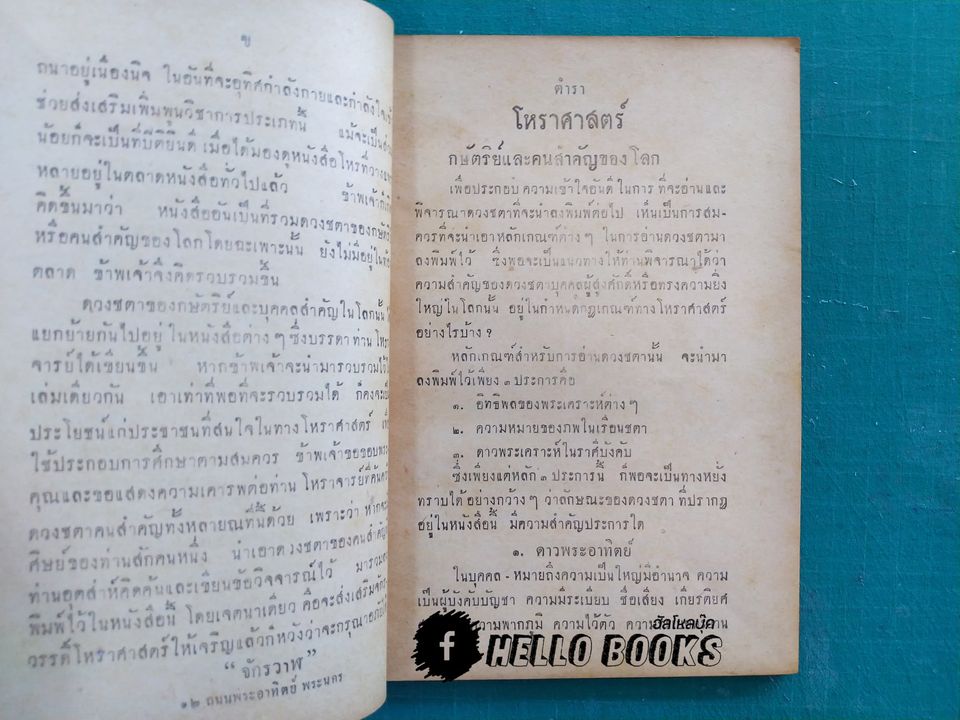 ข
ถนาอยู่เนืองนิจ ในอันที่จะอุทิศกำลังกายและกำลังใจ
ช่วยส่งเสริมเพิ่มพูนวิชาการประเภทนี้ แม้จะเป็น
น้อยก็จะเป็นที่ปีติยินดี เมื่อได้มองดูหนังสือโหรที่วาง
หลายอยู่ในตลาดหนังสือทั่วไปแล้ว ข้าพเจ้าก็
คิดขึ้นมาว่า หนังสืออันเป็นที่รวมดวงชตาของกษัตริ
หรือคนสำคัญของโลกโดยฉะเพาะนั้น ยังไม่มีอยู่ใน
ตลาด ข้าพเจ้าจึงคิดรวบรวมขึ้น
ดวงชตาของกษัตริย์และบุคคลสำคัญในโลกนั้น
แยกย้ายกันไปอยู่ ในหนังสือต่าง ๆ ซึ่งบรรดาท่าน โหรา
จารย์ได้เขียนขึ้น หากข้าพเจ้าจะนำมารวบรวมไว้
เล่มเดียวกัน เอาเท่าที่พอที่จะรวบรวมได้ ก็คงจะ
ประโยชน์แก่ประชาชนที่สนใจในทางโหราศาสตร์
ใช้ประกอบการศึกษาตามสมควร ข้าพเจ้าขอขอบพระ
คุณและขอแสดงความเคารพต่อท่าน โหราจารย์ที่ค้นคว้า
ดวงชตาคนสำคัญทั้งหลายณที่นี้ด้วย เพราะว่า หาก
ศิษย์ของท่านสักคนหนึ่ง นำเอาดวงชตาของคนสำคัญ
ท่านอุตส่าห์คิดค้นและเขียนข้อวิจจารณ์ไว้ มารวม
พิมพ์ไว้ในหนังสือนี้ โดยเจตนาเดียว คือจะส่งเสริม
วรรดิ์โหราศาสตร์ให้เจริญแล้วก็หวังว่าจะกรุณาอภัย
“จักรวาฬ”
๑๒ ถนนพระอาทิตย์ พระนคร
ตำรา
โหราศาสตร์
กษัตริย์และคนสำคัญของโลก
เพื่อประกอบความเข้าใจอันดี ในการ ที่จะอ่านและ
พิจารณาดวงชตาที่จะนำลงพิมพ์ต่อไป เห็นเป็นการสม-
ควรที่จะนำเอาหลักเกณฑ์ต่าง ๆ ในการอ่านดวงชตามา
ลงพิมพ์ไว้ ซึ่งพอจะเป็นแนวทางให้ท่านพิจารณาได้ว่า
ความสำคัญของดวงชตาบุคคลผู้สูงศักดิ์หรือทรงความยิ่ง
ใหญ่ในโลกนั้น อยู่ในกำหนดกฎเกณฑ์ทางโหราศาสตร์
อย่างไรบ้าง ?
หลักเกณฑ์สำหรับการอ่านดวงชตานั้น จะนำมา
ลงพิมพ์ไว้เพียง ๓ ประการคือ
๑. อิทธิพลของพระเคราะห์ต่าง ๆ
๒. ความหมายของภพในเรือนชตา
๓. ดาวพระเคราะห์ในราศีบังคับ
ซึ่งเพียงแต่หลัก ๓ ประการนี้ ก็พอจะเป็นทางหยั่ง
ทราบได้ อย่างกว้าง ๆ ว่าลักษณะของดวงชตา ที่ปรากฏ
อยู่ในหนังสือนี้ มีความสำคัญประการใด
๑. ดาวพระอาทิตย์
ในบุคคล - หมายถึงความเป็นใหญ่มีอำนาจ ความ
เป็นผู้บังคับบัญชา ความมีระเบียบ ชื่อเสียง เกียรติยศ
ความพากภูมิ ความไว้ตัว
ฮัลโหลบุ๊ค
f HELLO BOOKS